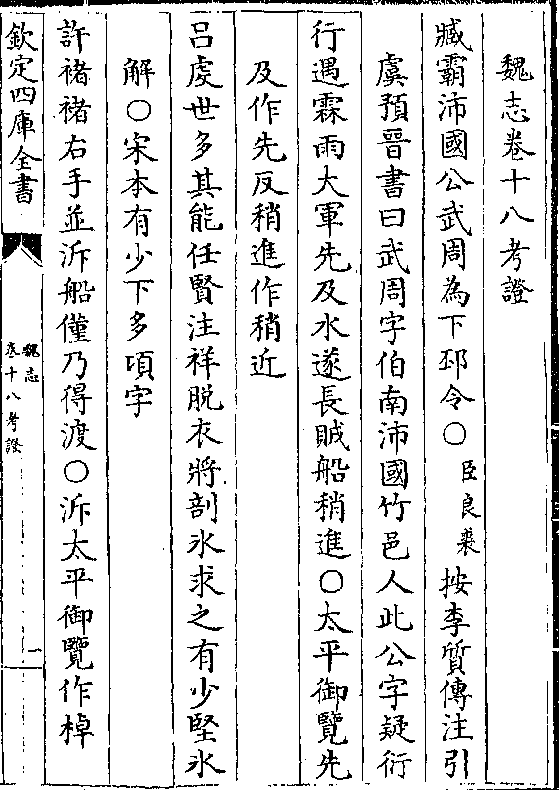 魏志卷十八考證
臧霸沛國公武周為下邳令○臣良裘按李質傳注引
虞預晉書曰武周字伯南沛國竹邑人此公字疑衍
行遇霖雨大軍先及水遂長賊船稍進○太平御覽先
及作先反稍進作稍近
呂虔世多其能任賢注祥脱衣將剖氷求之有少堅氷
解○宋本有少下多頃字
許褚褚右手並泝船僅乃得渡○泝太平御覽作棹
欽定四庫全書
魏志
卷十八考證
一